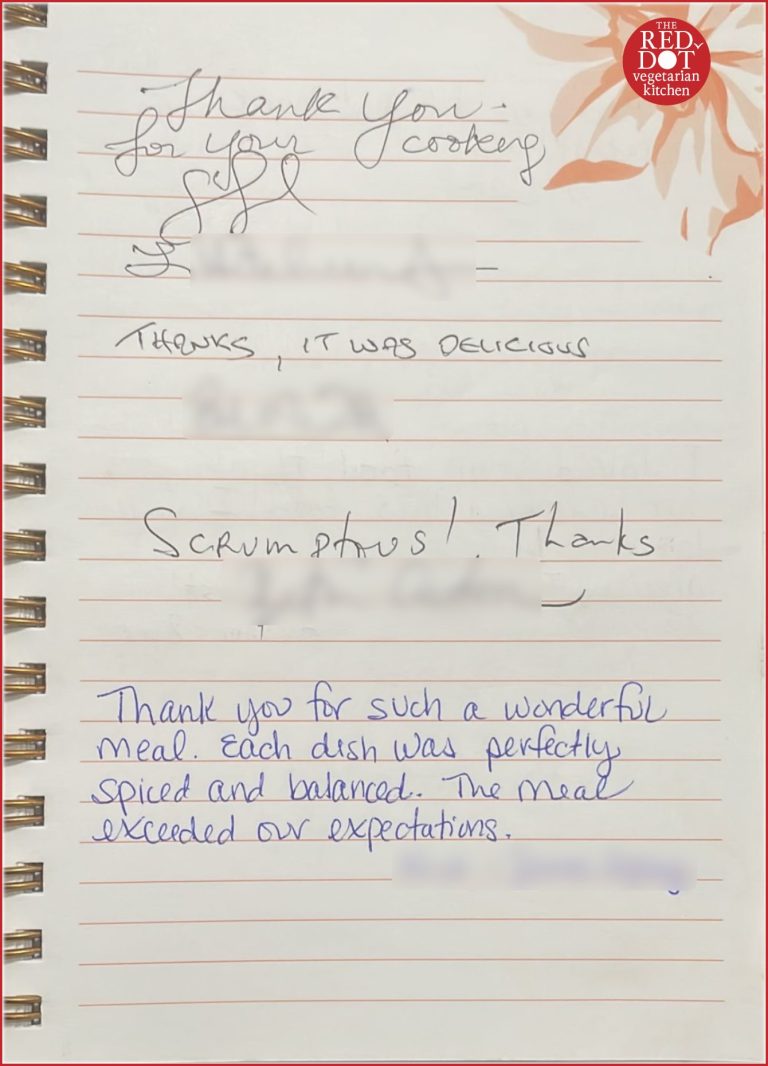 THE
RED
DOT
vegetarian
kitchen
Thank you.
for your cooking
THANKS, IT WAS DELICIOUS
SCRUMPTIOUS! Thanks
Thank you for such a wonderful
meal. Each dish was perfectly
spiced and balanced. The meal
exceeded our expectations.